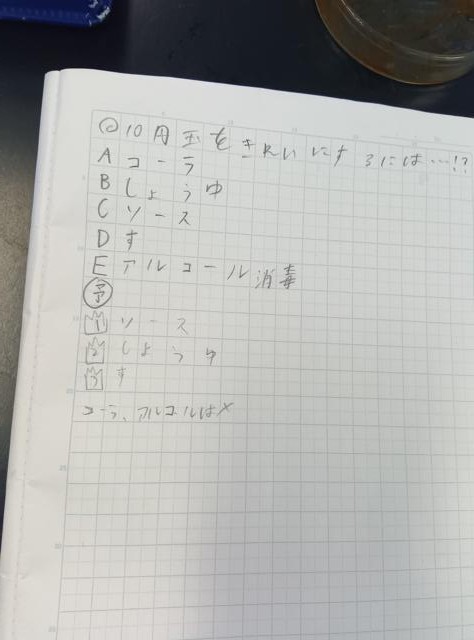 ◎10円玉をきれいにするには…!?
A コーラ
B しょうゆ
C ソース
D す
E アルコール消毒
予
1 ソース
2 しょうゆ
3 す
コーラ、アルコルは×